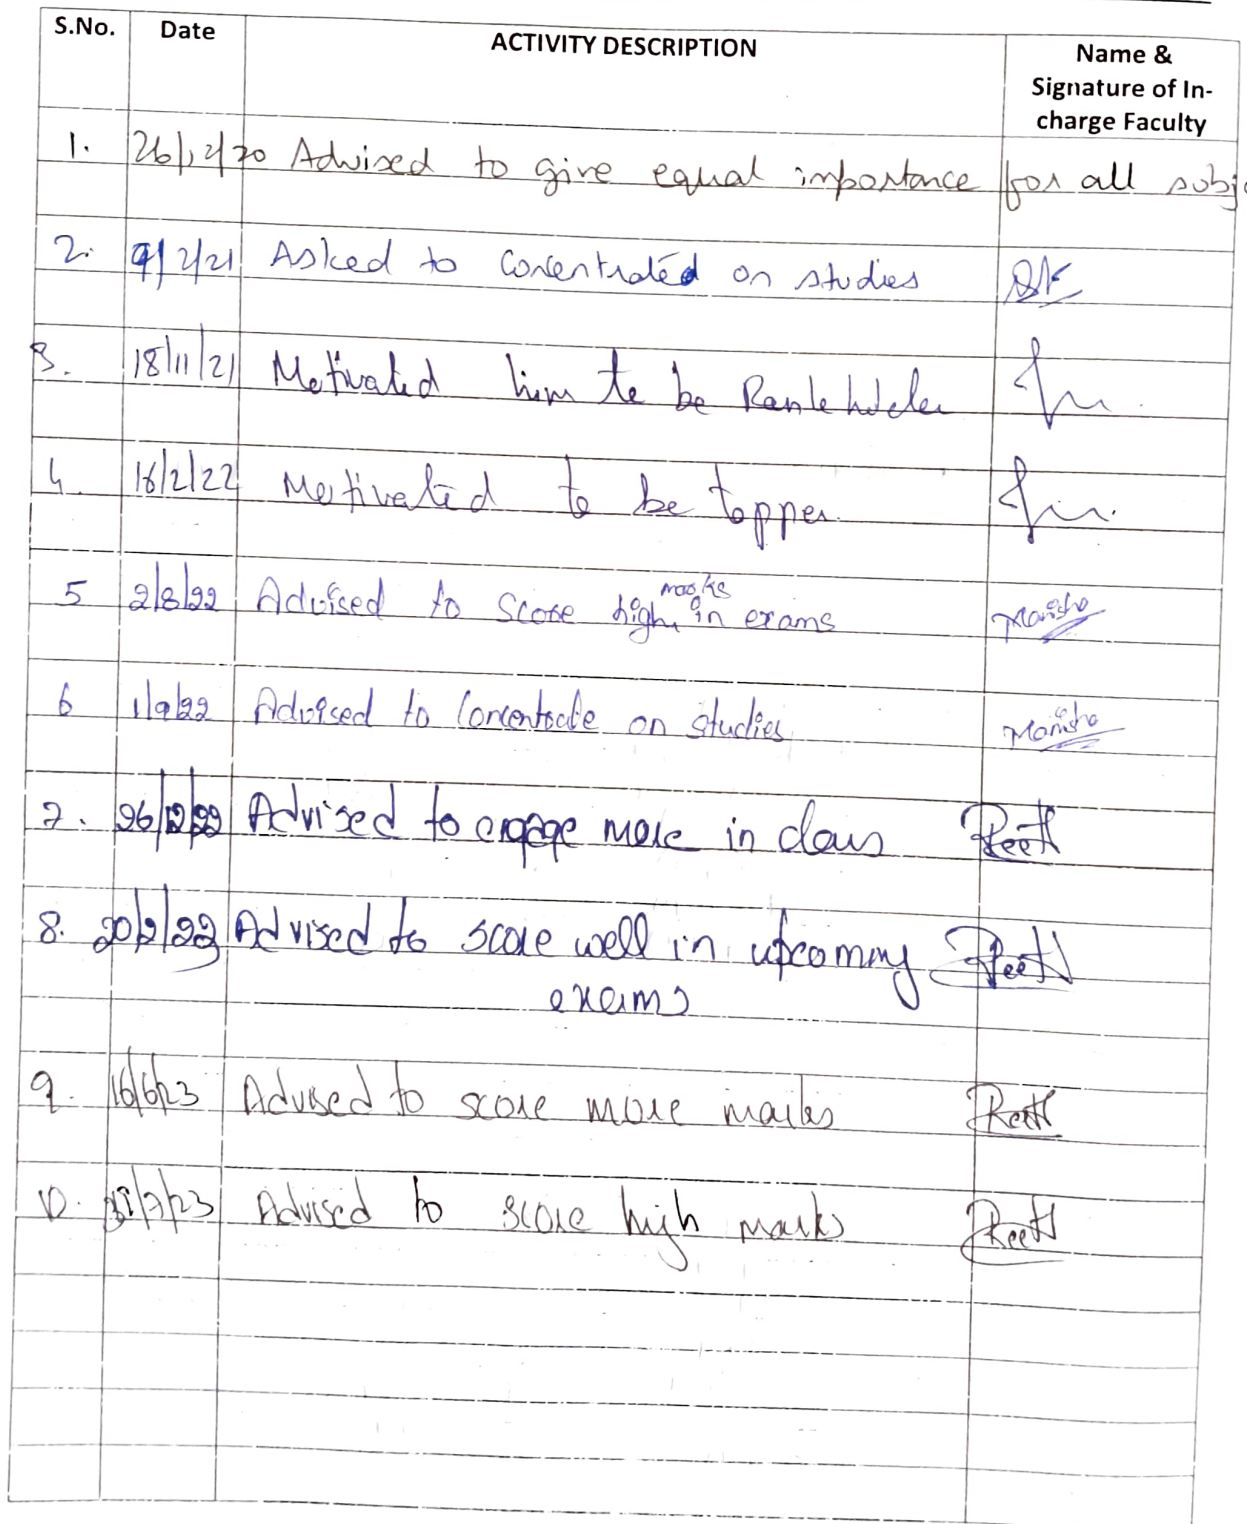 S.No. Date ACTIVITY DESCRIPTION Name &
Signature of In-
charge Faculty
1. 26/12/20 Advised to give equal importance for all subj
2. 9/2/21 Asked to Concentrated on studies
3. 18/11/21 Motivated him to be Rank holder
4. 16/2/22 Motivated to be topper.
5 2/8/22 Advised to score high marks in exams Manisha
6 1/9/22 Advised to Concentrate on studies Manisha
7. 26/12/22 Advised to engage more in class
8. 20/2/23 Advised to score well in upcoming
exams
9. 16/6/23 Advised to score more marks
10. /7/23 Advised to score high marks